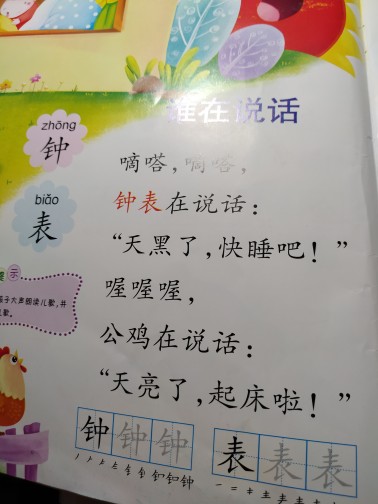 谁在说话
zhōng
钟
biǎo
表
嘀嗒，嘀嗒，
钟表在说话：
“天黑了，快睡吧！”
喔喔喔，
公鸡在说话：
“天亮了，起床啦！”
示
孩子大声朗读儿歌，并
钟 钟 钟
表 表 表